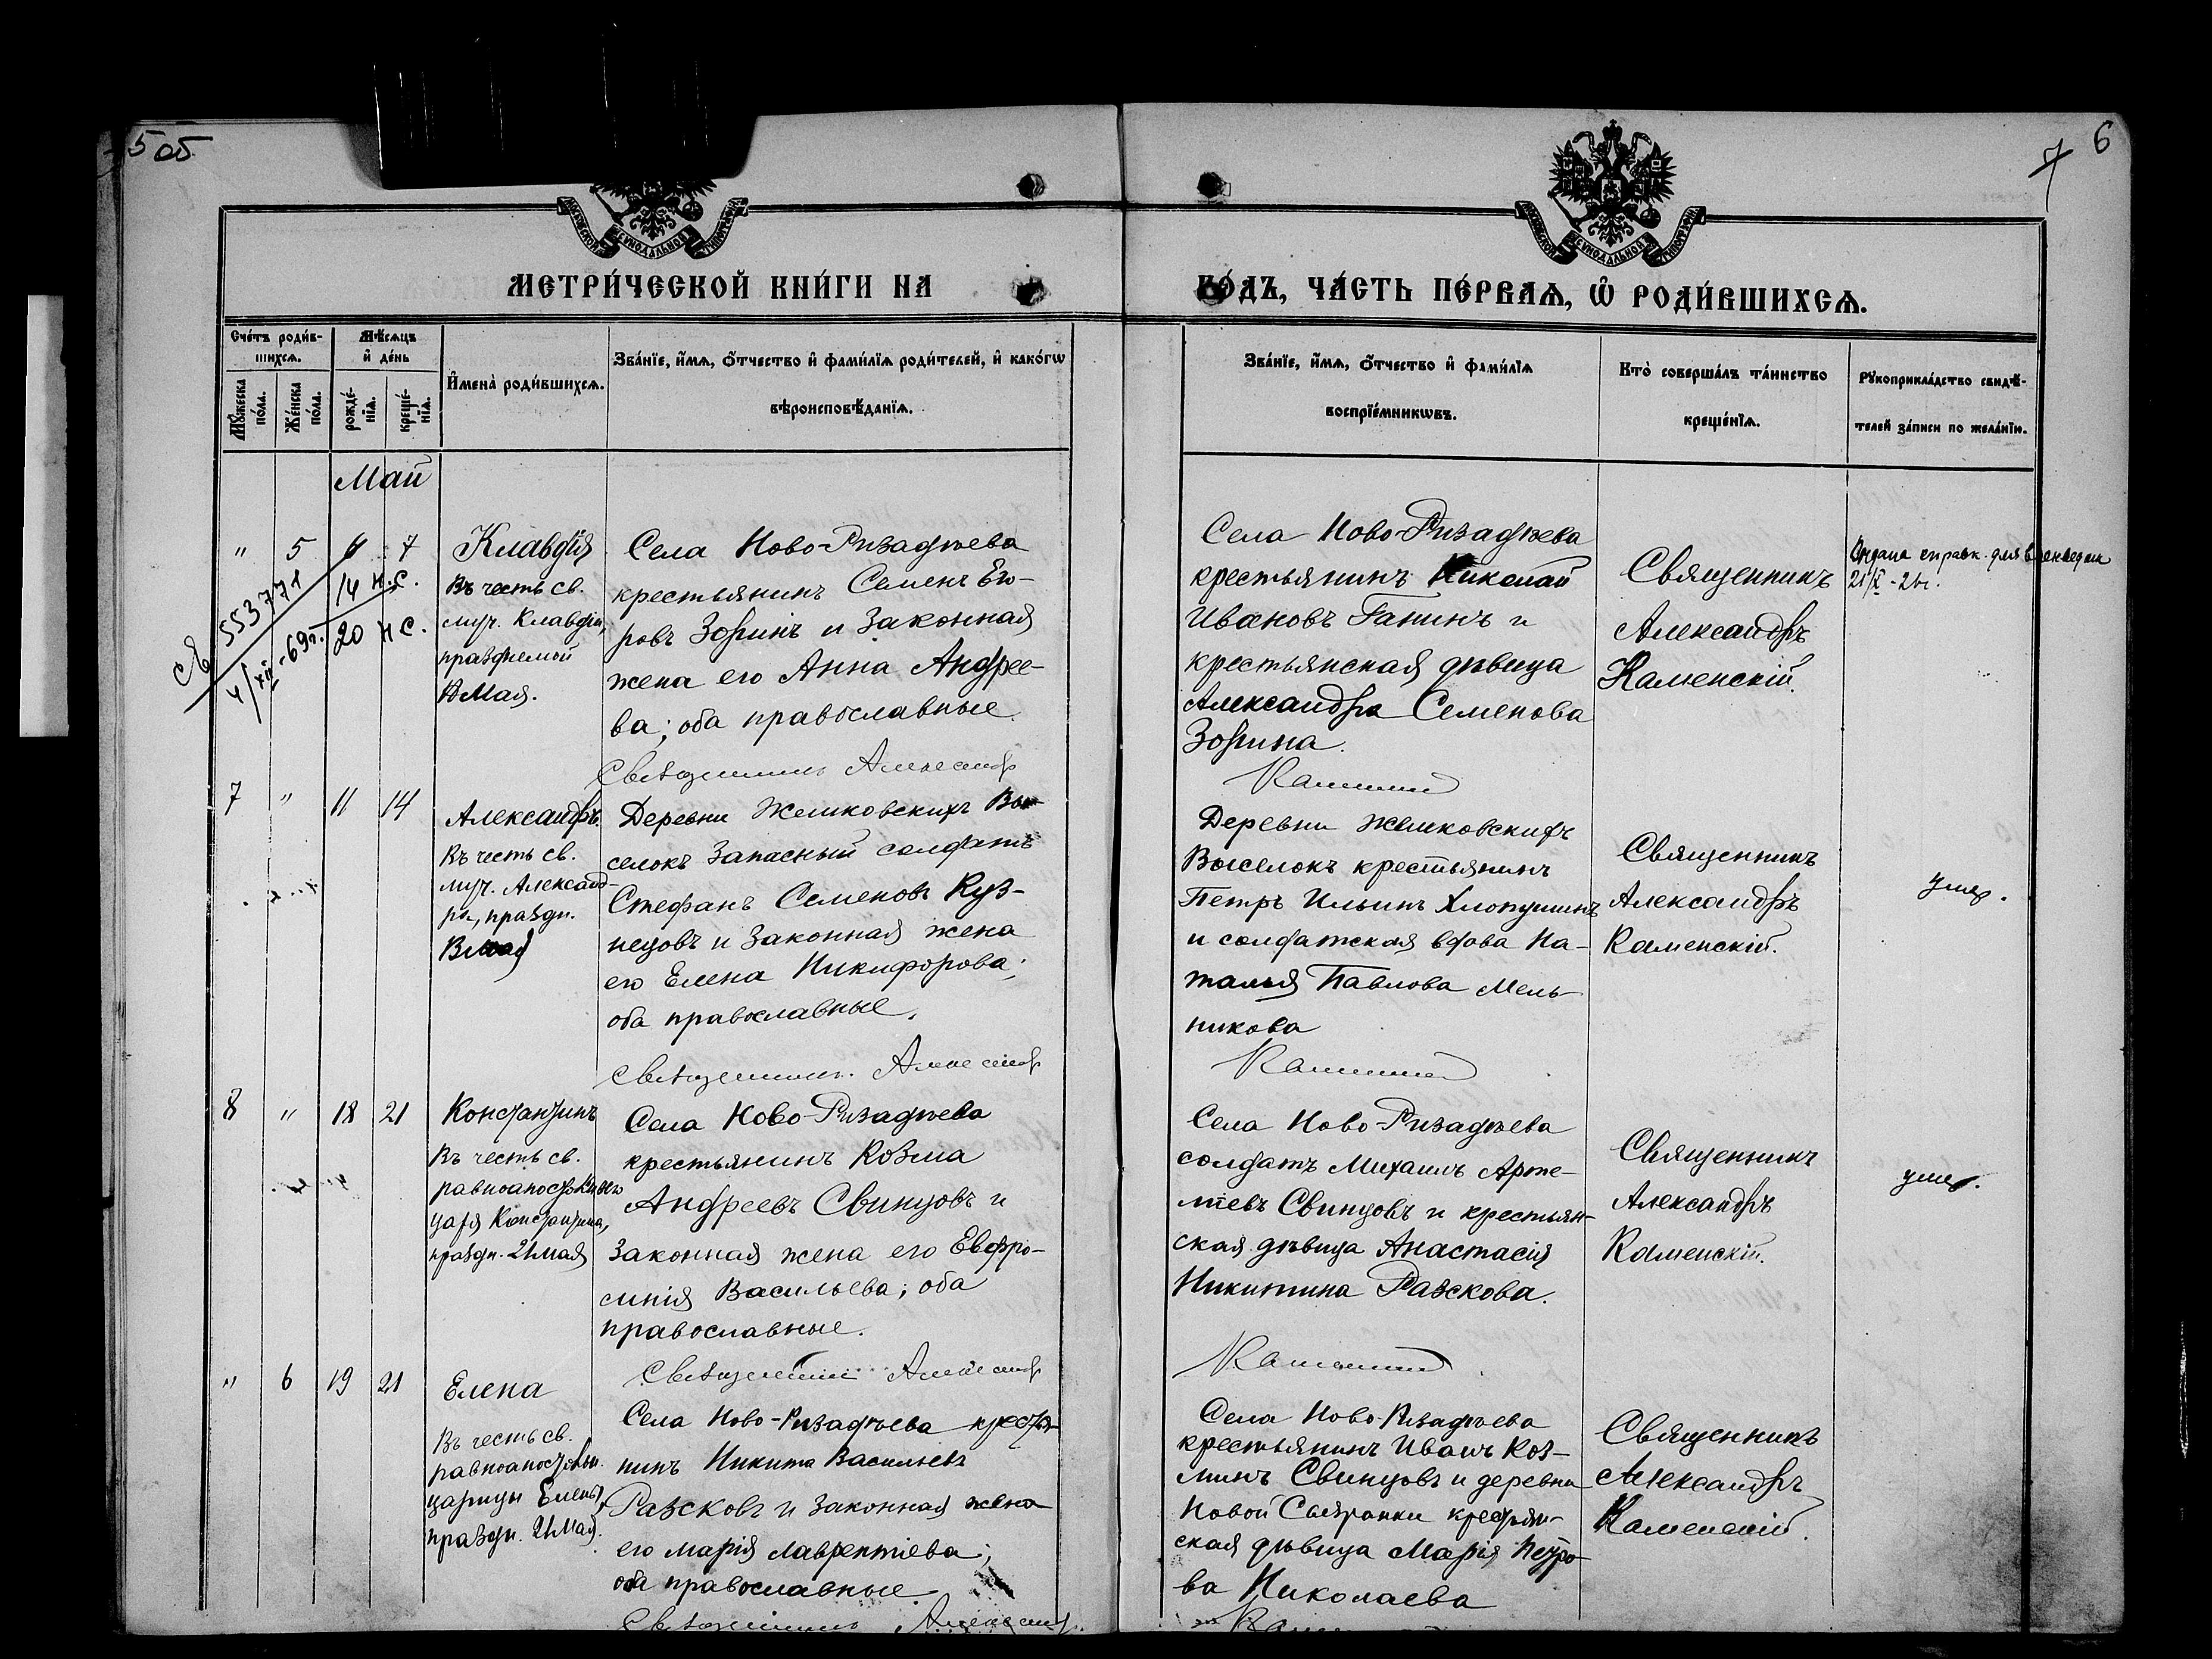 5 об.
7 6
МОСКОВСКОЙ СѴНОДАЛЬНОЙ ТИПОГРАФІИ
МОСКОВСКОЙ СѴНОДАЛЬНОЙ ТИПОГРАФІИ
МЕТРИ́ЧЕСКОЙ КНИ́ГИ НА
ГО́ДЪ, ЧА́СТЬ ПЕ́РВАѦ, Ѽ РОДИ́ВШИХСѦ.
Сче́тъ роди́в-
шихсѧ.
Мꙋ́жеска по́ла.
Же́нска по́ла.
Мѣ́сѧцъ
и҆ де́нь
рожде́-
нїѧ.
креще́-
нїѧ.
И҆мена̀ роди́вшихсѧ.
Зва́нїе, и҆́мѧ, ѻ҆́тчество и҆ фами́лїѧ роди́телей, и҆ како́гѡ
вѣроисповѣ́данїѧ.
Зва́нїе, и҆́мѧ, ѻ҆́тчество и҆ фами́лїѧ
воспрїе́мникѡвъ.
Кто̀ соверша́лъ та́инство
креще́нїѧ.
Рꙋкоприкла́дство свидѣ́-
телей за́писи по жела́нїю.
Май
" 5 6 7
14 н.с.
20 н с.
СЯ 553771
4/XII-69г.
Клавдія
Въ честь св.
муч. Клавдіи,
празднемой
Мая.
Села Ново-Ризадѣева
крестьянинъ Семенъ Его-
ровъ Зоринъ и законная
жена его Анна Андрее-
ва; оба православные.
Священникъ Александр
Села Ново-Ризадѣева
крестьянинъ Николай
Ивановъ Ганинъ и
крестьянская дѣвица
Александра Семенова
Зорина.
Каменский
Священникъ
Александръ
Каменскій.
Выдана справк. для
7 " 11 14
Александръ.
Въ честь св.
муч. Александ-
ра, праздн.
Мая
Деревни Жешковскихъ Вы-
селокъ запасный солдатъ
Стефанъ Семеновъ Куз-
нецовъ и законная жена
его Елена Никифорова;
оба православные.
Священникъ Александр
Деревни Жешковскихъ
Выселокъ крестьянинъ
Петръ Ильинъ Хлопушинъ
и солдатская вдова На-
талья Павлова Мель-
никова
Каменский
Священникъ
Александръ
Каменскій.
умер.
8 " 18 21
Константинъ
Въ честь св.
равноапостольнаго
царя Константина,
праздн. 21 мая
Села Ново-Ризадѣева
крестьянинъ Козма
Андреевъ Свинцовъ и
законная жена его Евфро-
синія Васильева; оба
православные.
Священникъ Александр
Села Ново-Ризадѣева
солдатъ Михаилъ Арте-
міевъ Свинцовъ и крестьян-
ская дѣвица Анастасія
Никитина Разскова.
Каменский
Священникъ
Александръ
Каменскій.
умер.
" 6 19 21
Елена
Въ честь св.
равноапостольн.
царицы Елены,
праздн. 21 Мая.
Села Ново-Ризадѣева крестья-
нинъ Никита Васильевъ
Разсковъ и законная жена
его Марія Лаврентіева;
оба православные.
Священникъ Александр
Села Ново-Ризадѣева
крестьянинъ Иванъ Коз-
минъ Свинцовъ и деревни
Новой Сызранки крестьян-
ская дѣвица Марія Петро-
ва Николаева
Священникъ
Александръ
Каменскій.